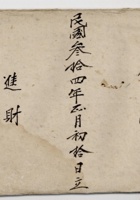 民國叁拾四年正月初拾日立
進財